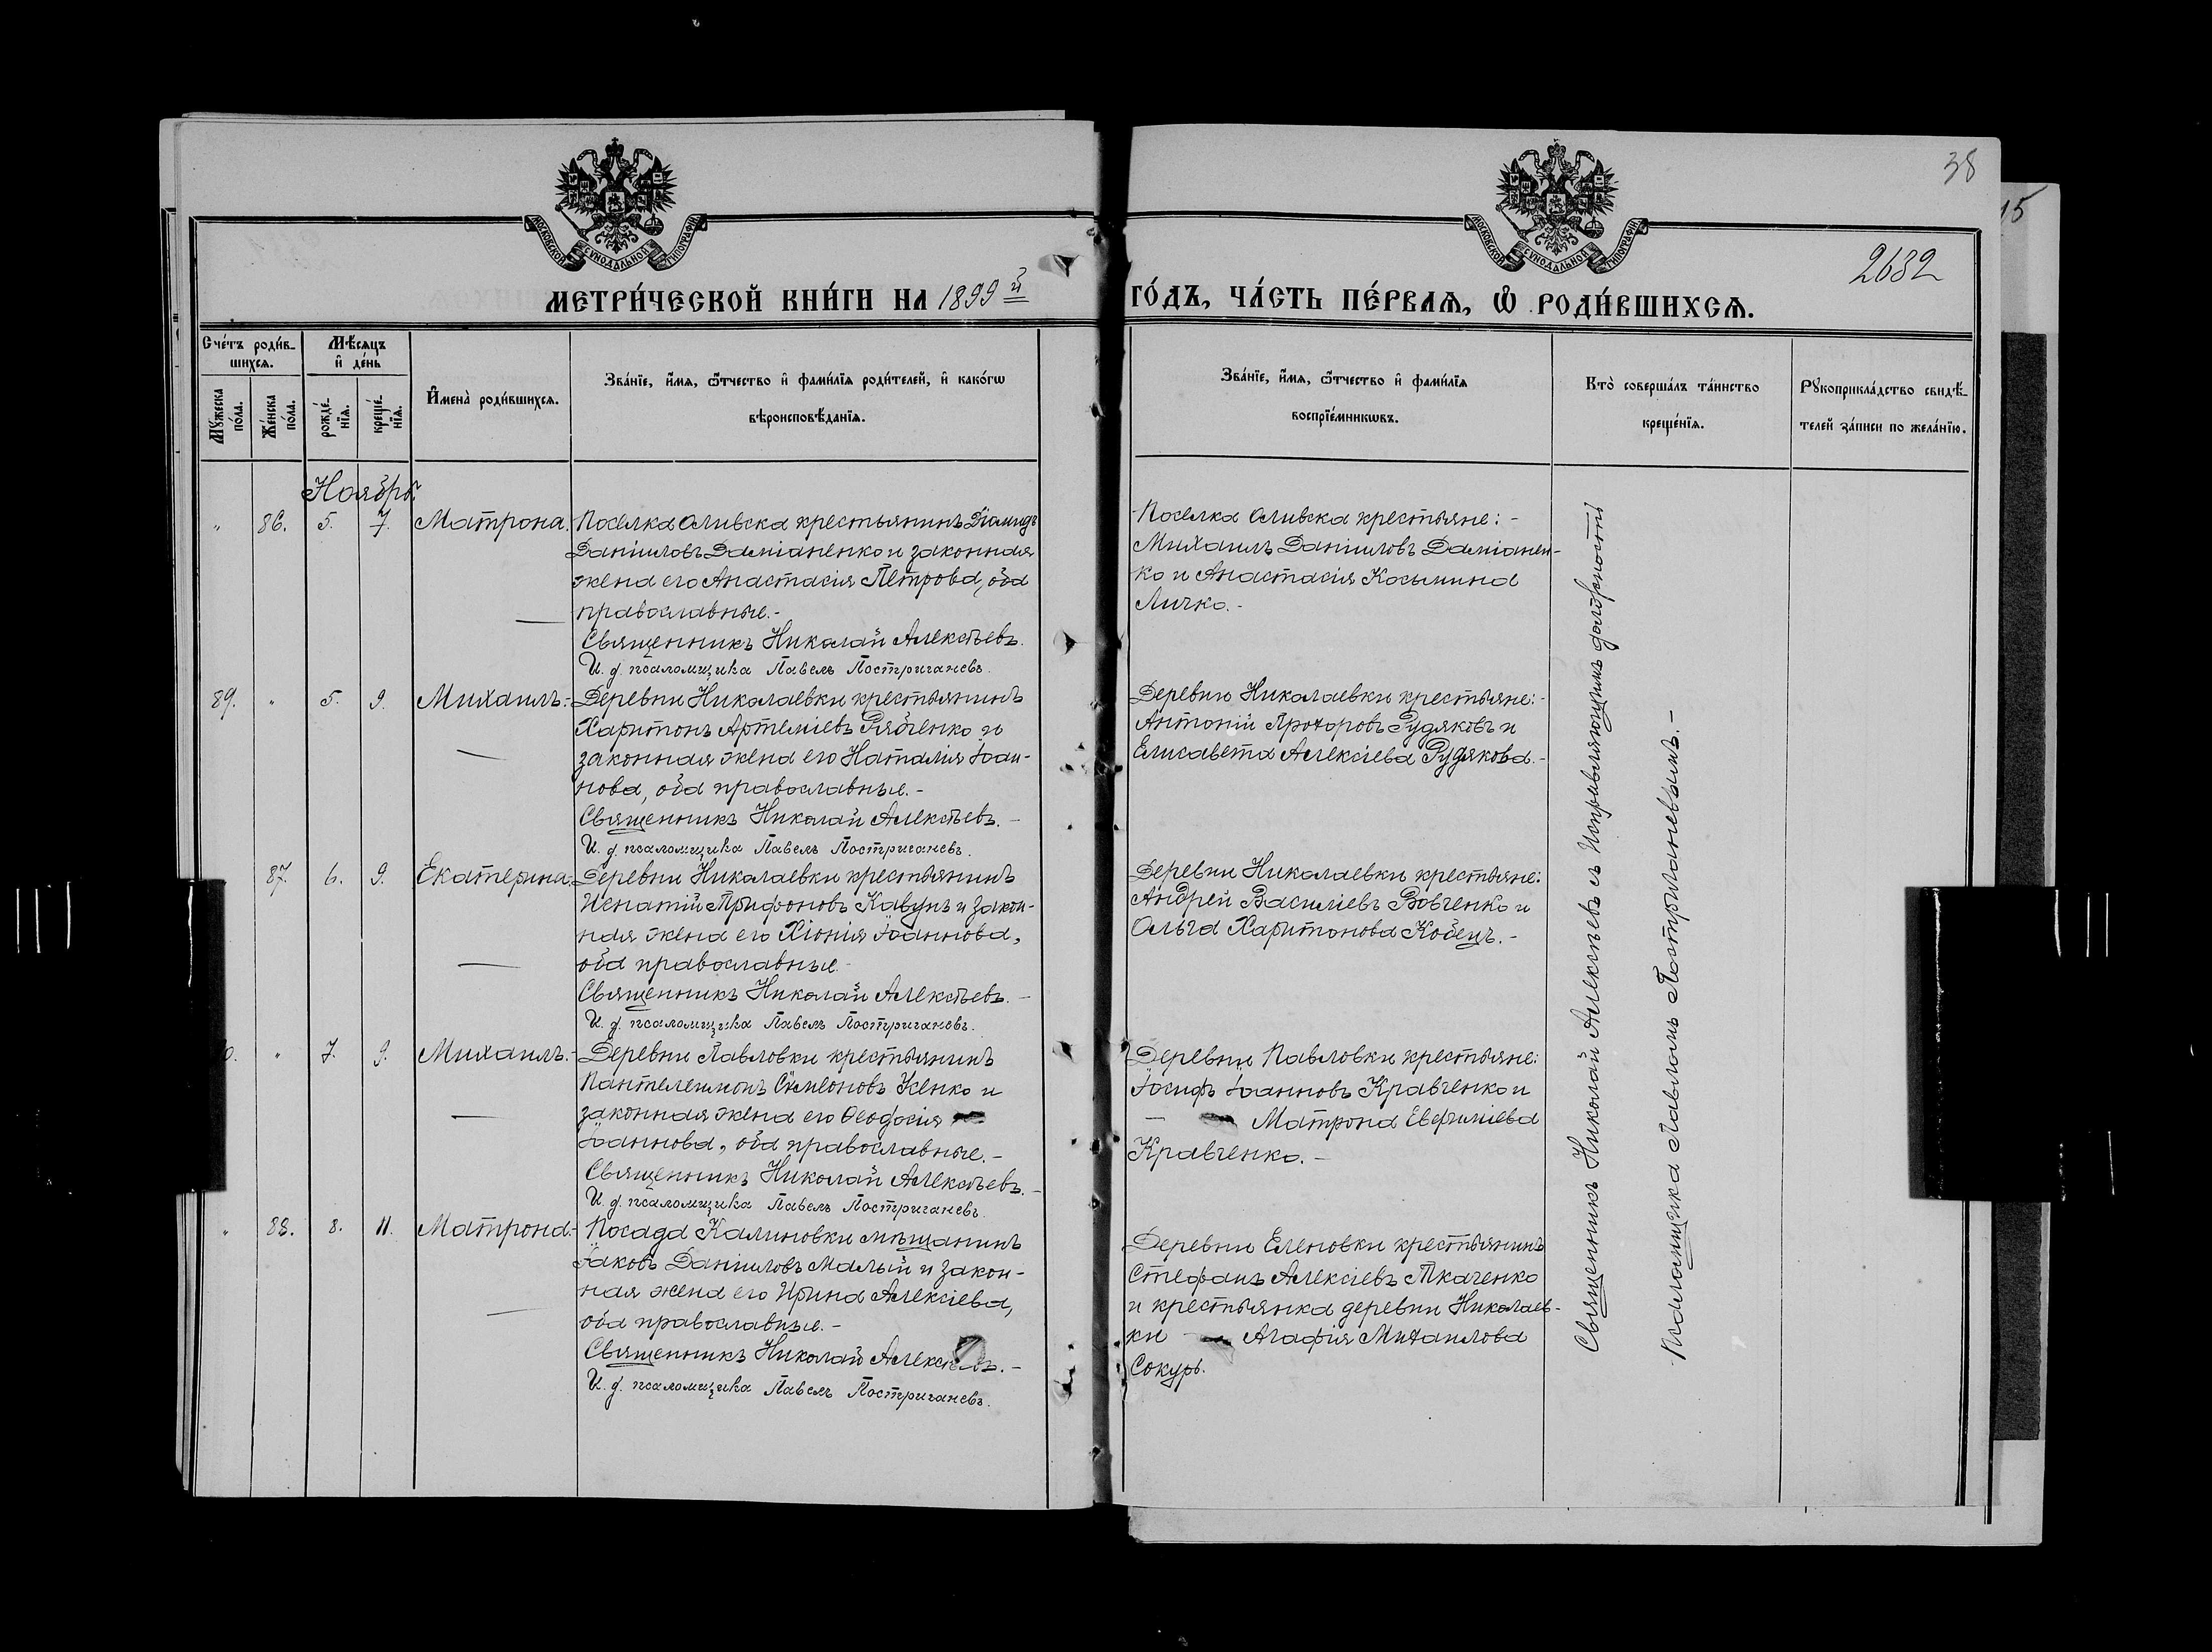 38
15
МОСКОВСКОЙ СѴНОДАЛЬНОЙ ТИПОГРАФІИ
МОСКОВСКОЙ СѴНОДАЛЬНОЙ ТИПОГРАФІИ
2682
МЕТРИ́ЧЕСКОЙ КНИ́ГИ НА 1899 й
ГО́ДЪ, ЧА́СТЬ ПЕ́РВАѦ, Ѽ РОДИ́ВШИХСѦ.
Сче́тъ роди́в-
шихсѧ.
Мѣ́сѧцъ
и҆ де́нь
Мꙋ́жеска
по́ла.
Же́нска
по́ла.
рожде́-
нїѧ.
креще́-
нїѧ.
И҆мена̀ роди́вшихсѧ.
Зва́нїе, и҆́мѧ, ѻ҆́тчество и҆ фами́лїѧ роди́телей, и҆ како́гѡ
вѣроисповѣ́данїѧ.
Зва́нїе, и҆́мѧ, ѻ҆́тчество и҆ фами́лїѧ
воспрїе́мникѡвъ.
Кто̀ соверша́лъ та́инство
креще́нїѧ.
Рꙋкоприкла́дство свидѣ́-
телей за́писи по жела́нїю.
Ноябрь
" 86. 5. 7. Матрона. Поселка Оливска крестьянинъ Діамидъ
Даніиловъ Даміаненко и законная
жена его Анастасія Петрова, оба
православные. -
Священникъ Николай Алексѣевъ.
И. д. псаломщика Павелъ Постригачевъ.
Поселка Оливска крестьяне: -
Михаилъ Даніиловъ Даміанен-
ко и Анастасія Косьмина
Личко. -
89. " 5. 9. Михаилъ. - Деревни Николаевки крестьянинъ
Харитонъ Артеміевъ Рябченко и
законная жена его Наталія Іоан-
нова, оба православные. -
Священникъ Николай Алексѣевъ. -
И. д. псаломщика Павелъ Постригачевъ.
Деревни Николаевки крестьяне: -
Антоній Прохоровъ Рудяковъ и
Елисавета Алексіева Рудякова. -
87. 6. 9. Екатерина. Деревни Николаевки крестьянинъ
Игнатій Трифоновъ Кавунъ и закон-
ная жена его Хіонія Іоаннова,
оба православные -
Священникъ Николай Алексѣевъ. -
И. д. псаломщика Павелъ Постригачевъ.
Деревни Николаевки крестьяне:
Андрей Василіевъ Вовченко и
Ольга Харитонова Кобецъ. -
0. " 7. 9. Михаилъ. - Деревни Павловки крестьянинъ
Пантелеимонъ Сѵмеоновъ Усенко и
законная жена его Ѳеодосія
Іоаннова, оба православные. -
Священникъ Николай Алексѣевъ. -
И. д. псаломщика Павелъ Постригачевъ.
Деревни Павловки крестьяне:
Іосифъ Іоанновъ Кравченко и
- Матрона Евфиміева
Кравченко. -
" 88. 8. 11. Матрона. - Посада Калиновки мѣщанинъ
Іаковъ Даніиловъ Малый и закон-
ная жена его Ирина Алексіева,
оба православные. -
Священникъ Николай Алексѣевъ. -
И. д. псаломщика Павелъ Постригачевъ.
Деревни Еленовки крестьянинъ
Стефанъ Алексіевъ Ткаченко
и крестьянка деревни Николаев-
ки Агафія Михаилова
Сокуръ.
Священникъ Николай Алексѣевъ съ исправляющимъ должность
Псаломщика Павломъ Постригачевымъ. -